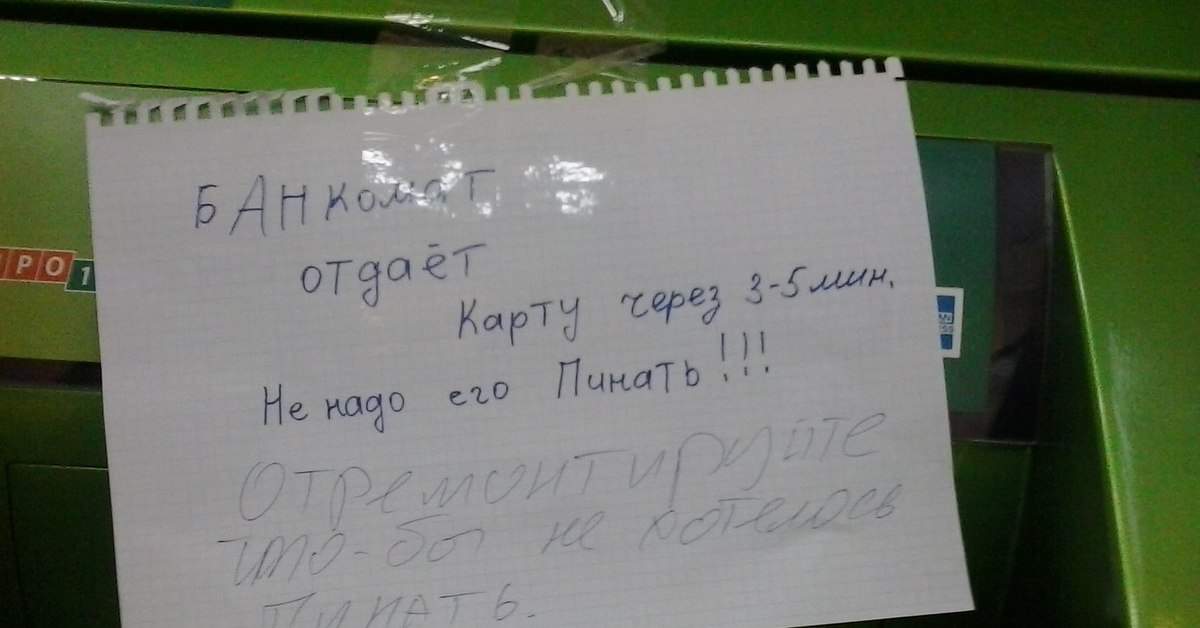 БАНкомат
отдаёт
Карту через 3-5 мин.
Не надо его Пинать!!!
Отремонтируйте
что-бы не хотелось
Пинать.
РО 1
AN